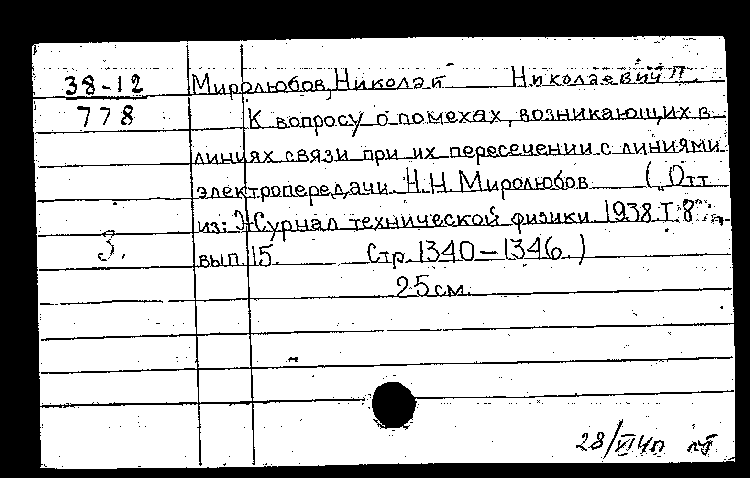 38-12 Миролюбов, Николай Николаевич
778 К вопросу о помехах, возникающих в
линиях связи при их пересечении с линиями
электропередачи. Н.Н. Миролюбов. (Отт
из: Журнал технической физики 1938 Т. 8
3. вып 15. Стр. 1340-1346.)
25 см.
28/VI